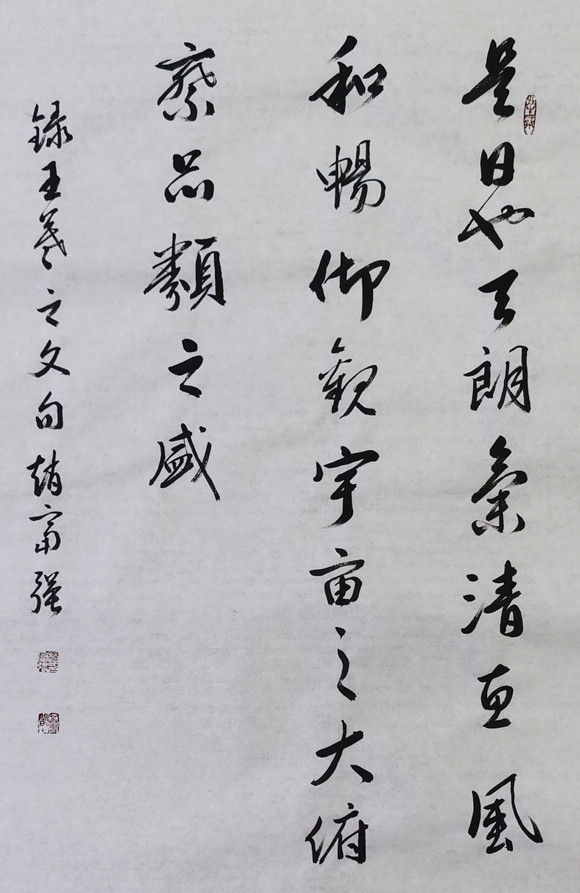 是日也天朗氣清惠風
和暢仰觀宇宙之大俯
察品類之盛
錄王羲之文句趙富强